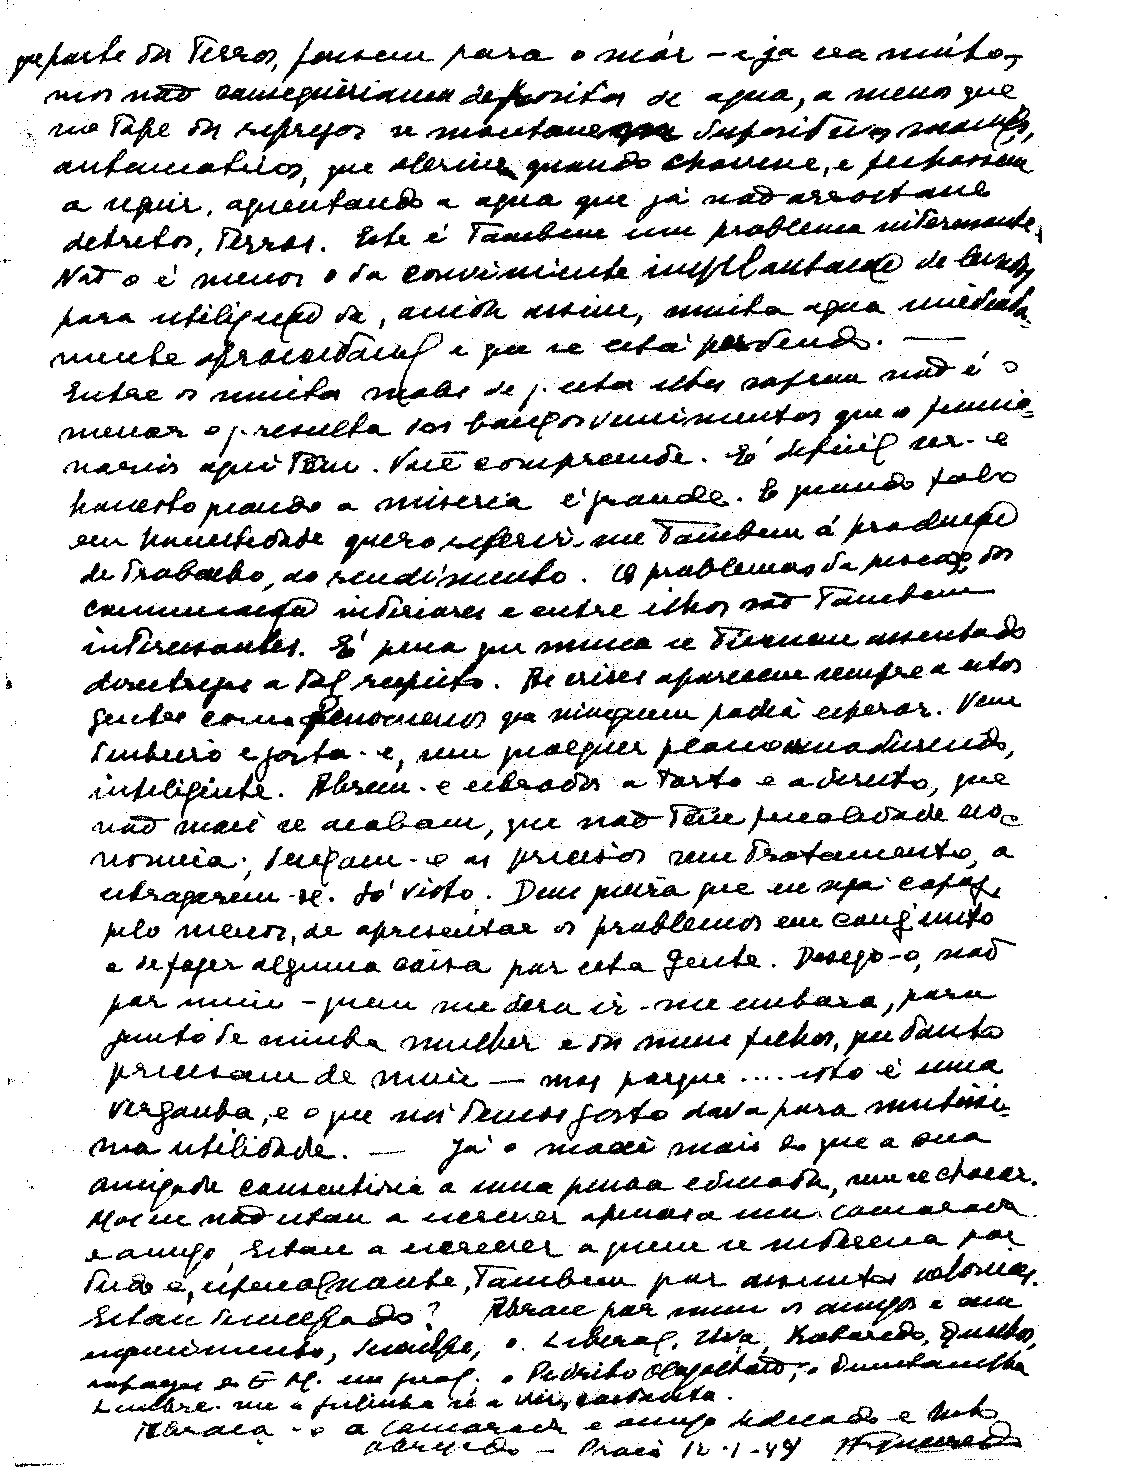 que parte das terras, fossem para o mar – e já era muito –,
nós não conseguiriamos depositos de agua, a menos que
no tape das represas se montassem dispositivos
automaticos, que abrissem quando chovesse, e fechassem
a seguir, aguentando a agua que já não arrostasse
detretos, terras. Este é tambem um problema interessante.
Não o é menos o da conveniente implantação de
para utilização da, ainda assim, muita agua
mente aproveitavel e que se está perdendo. —
Entre os muitos males de q. estas ilhas sofrem não é o
menor o q. resulta dos baixos vencimentos que o funcio-
narios aqui têm. Você compreende. É dificil ser-se
honesto quando a miseria é grande. E quando falo
em honestidade quero referir-me tambem á produção
de trabalho, ao rendimento. Os problemas da pesca, das
comunicações interiores e entre ilhas são tambem
interessantes. É pena que nunca se tivessem assentado
directrizes a tal respeito. As crises aparecem sempre a estas
gentes como fenomenos que ninguem podia esperar. Vem
dinheiro e gasta-se, sem qualquer plano amadurecido,
inteligente. Abrem-se estradas a torto e a direito, que
não mais se acabam, que não têm finalidade eco-
nomica; deixam-se as precisas sem tratamento, a
estragarem-se. Só visto. Deus queira que eu seja capaz,
pelo menos, de apresentar os problemas em conjunto
e de fazer alguma coisa por esta gente. Desejo-o, não
por mim – quem me dera ir-me embora, para
junto de minha mulher e dos meus filhos, que tanto
precisam de mim — mas porque .... isto é uma
vergonha, e o que nós temos gasto dava para muitissi-
ma utilidade. — Já o macei mais do que a sua
amizade consentiria a uma pessoa educada, sem se chocar.
Mas eu não estou a escrever apenas a um camarada
e amigo, Estou a escrever a quem se interessa por
tudo e, especialmente, tambem por assuntos coloniais.
Estou desculpado? Abrace por mim os amigos e sem
esquecimento, o Liberal,
rapazes do E. M. em geral. o Pedrito
Lembre-me a
Abraça-o o camarada e amigo dedicado e mto
obrigado — Praia 12-1-49